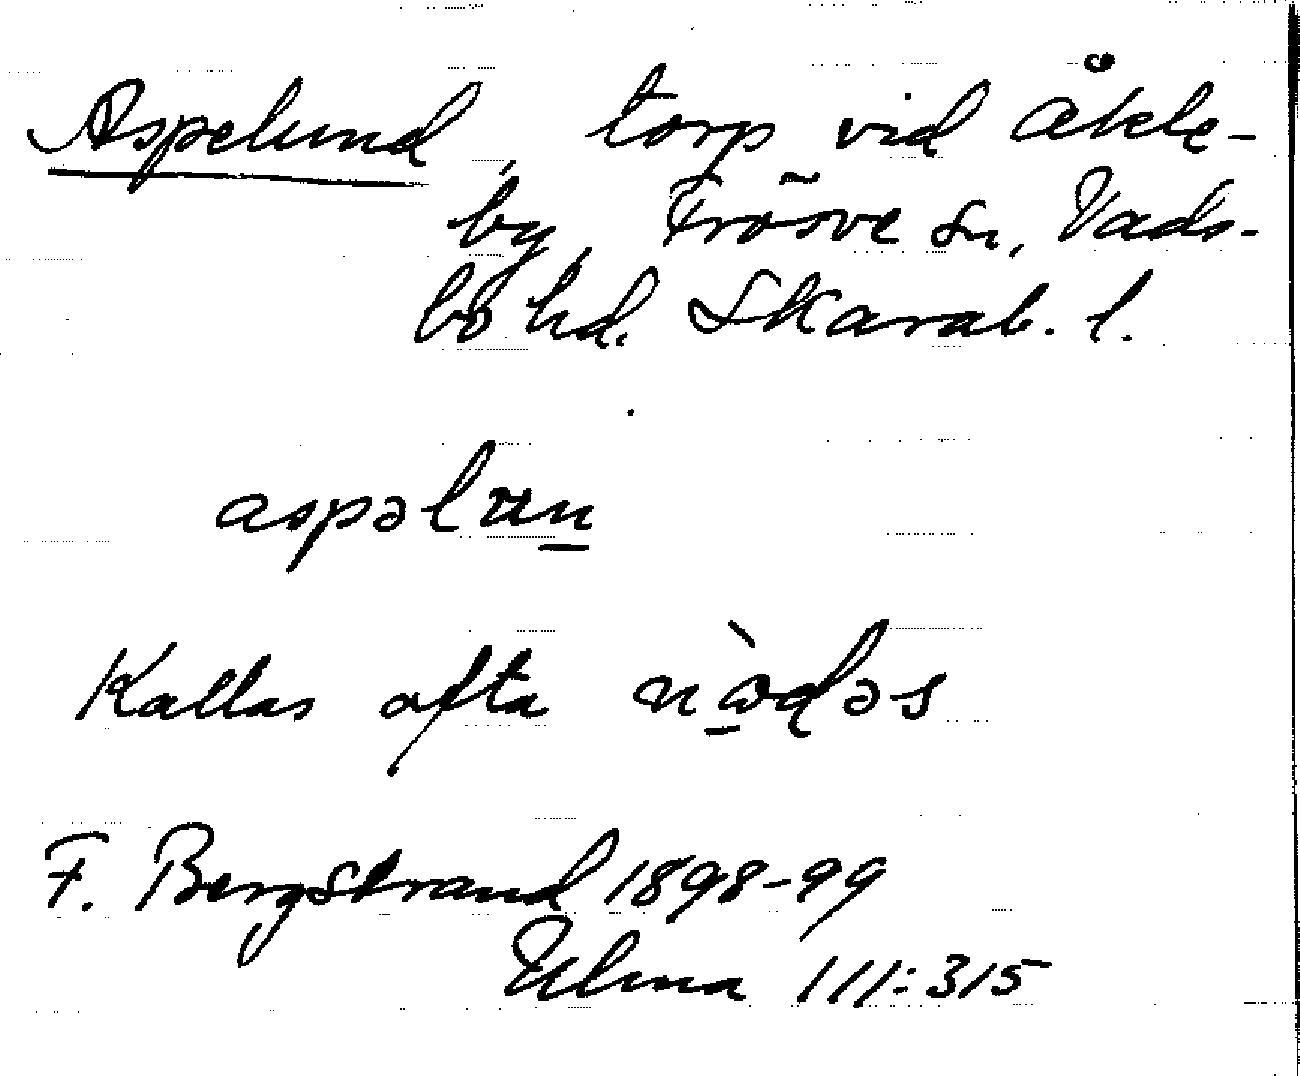 Aspelund, torp vid Åkle-
by, Frösve sn, Vads-
bo hd. Skarab. l.
aspəlun
Kallas ofta
F. Bergstrand 1898-99
Ulma 111:315